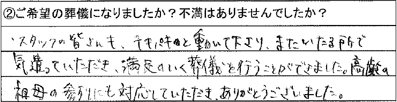 ②ご希望の葬儀になりましたか？不満はありませんでしたか？
・スタッフの皆さんも、テキパキと動いて下さり、またいたる所で
気遣っていただき、満足のいく葬儀を行うことができました。高齢の
祖母の参列にも対応していただき、ありがとうございました。